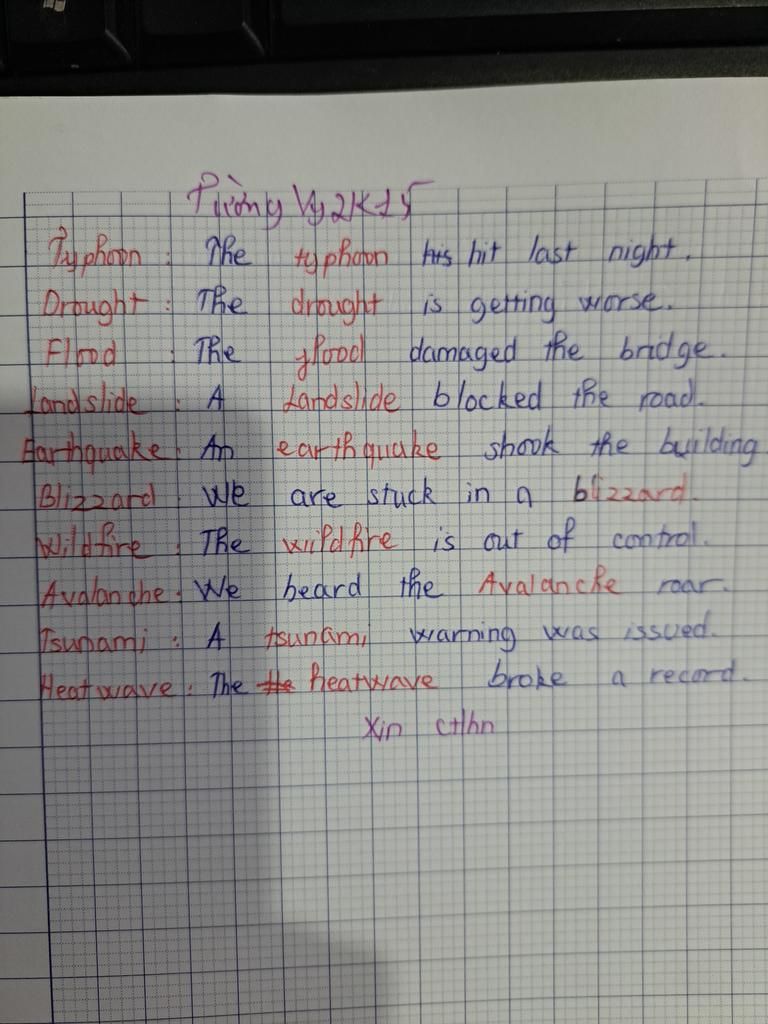 Tường Vy 2K15
Typhoon : The typhoon hit last night.
Drought : The drought is getting worse.
Flood : The flood damaged the bridge.
Landslide : A Landslide blocked the road.
Earthquake : An earthquake shook the building
Blizzard : We are stuck in a blizzard.
Wildfire : The wildfire is out of control.
Avalanche : We heard the Avalanche roar.
Tsunami : A tsunami warning was issued.
Heatwave : The heatwave broke a record.
Xin